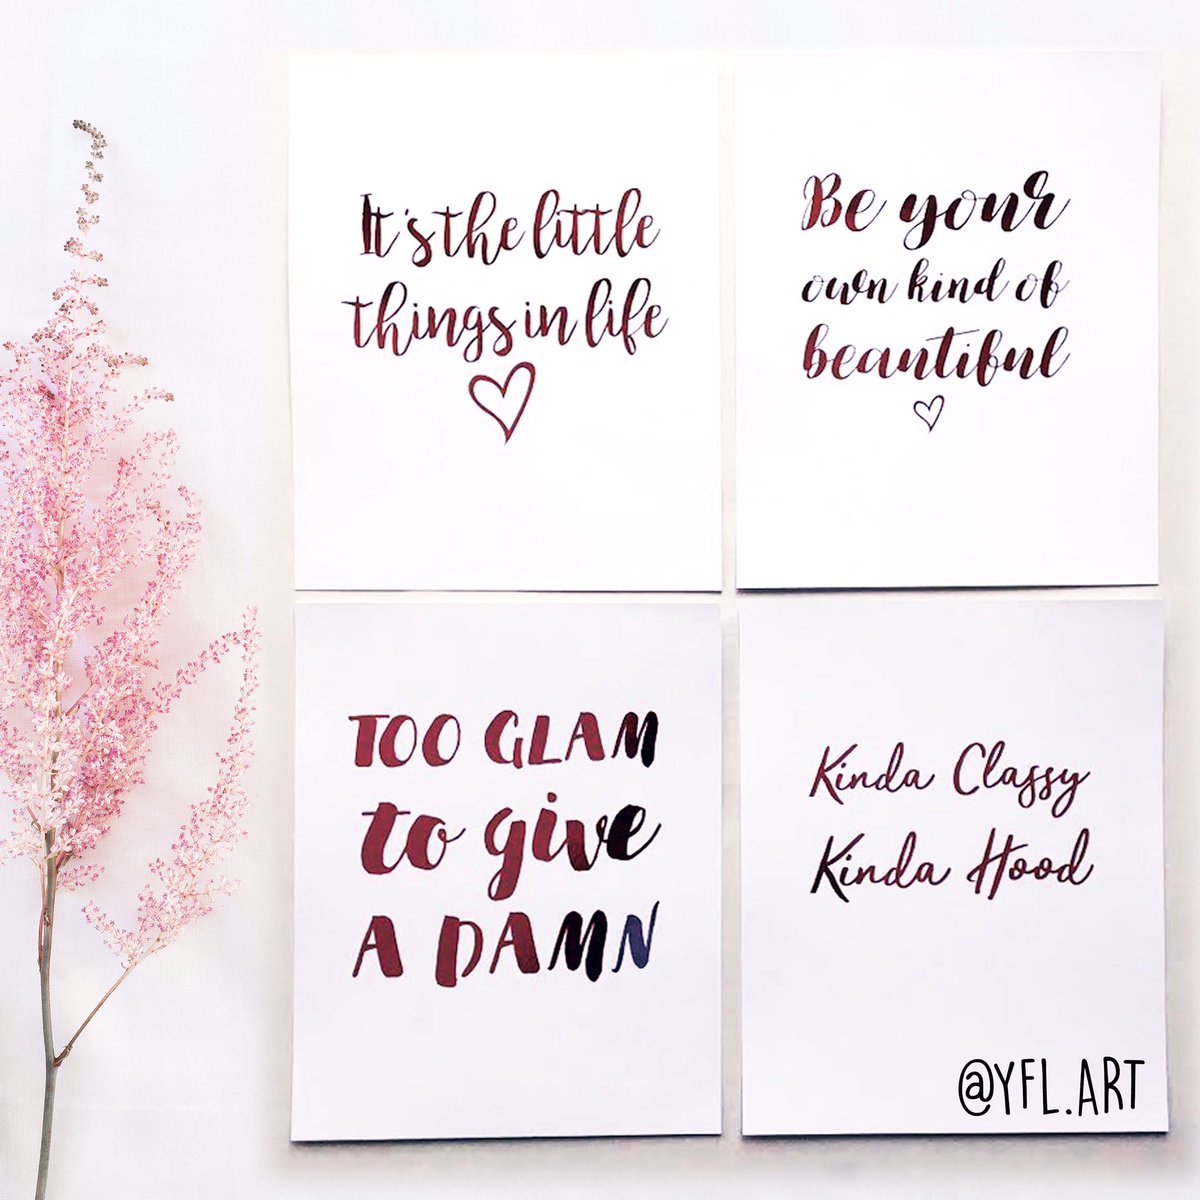 It's the little
things in life
Be your
own kind of
beautiful
TOO GLAM
to give
A DAMN
Kinda Classy
Kinda Hood
@YFL.ART